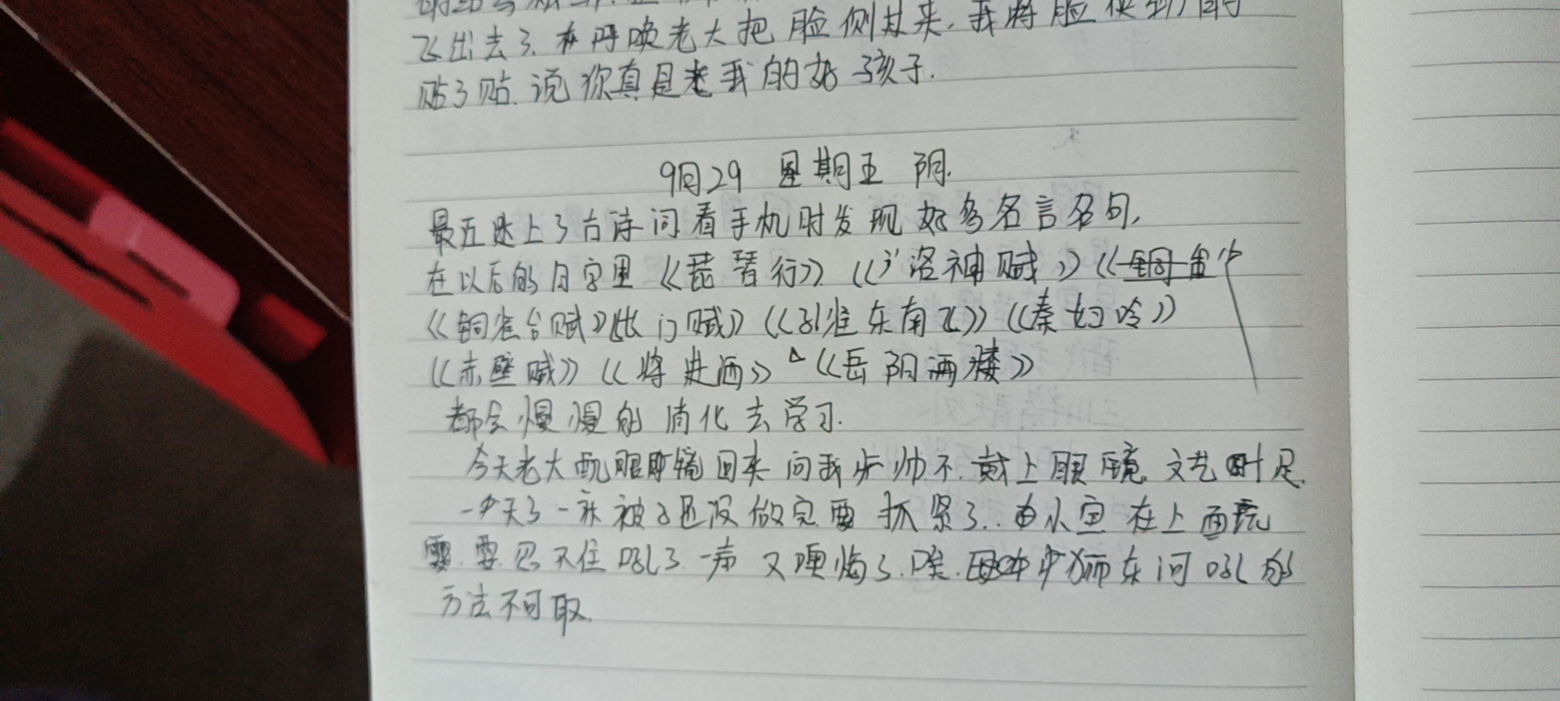 飞出去了.在呼唤老大把脸侧过来,我将脸
贴了贴.说你真是老我的好孩子.
9月29 星期五 阴.
最近迷上了古诗词看手机时发现好多名言名句,
在以后的日子里《琵琶行》《洛神赋》《铜雀
《铜雀台赋》《孔雀东南飞》《秦妇吟》
《赤壁赋》《将进酒》《岳阳楼》
都会慢慢的消化去学习.
今天老大配眼镜回来问我帅不.戴上眼镜.文艺
天了一床被子还没做完要抓紧了..由小宝在上面玩
耍.要忍不住吼了一声又懊悔了.唉.河东狮吼的
方法不可取.